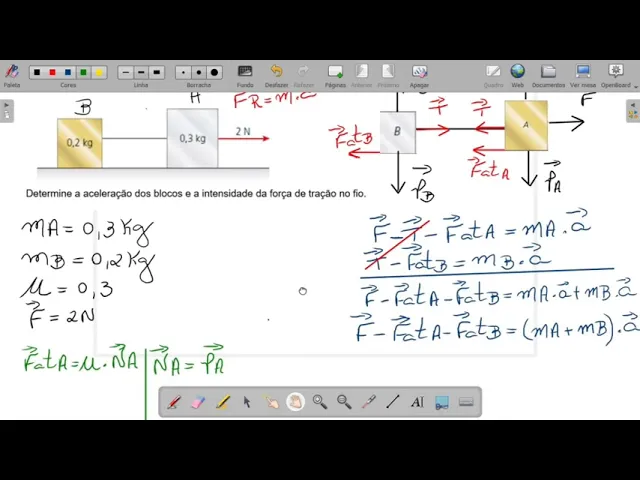 Paleta Cores Linhas Borracha Funda Desfazer Refazer Páginas Anterior Próxima Apagar Quadro Web Documentos Desktop OpenBoard
B A FR = m.a
0,2 kg 0,3 kg 2 N
T T F
B A
FatB FatA
PB PA
Determine a aceleração dos blocos e a intensidade da força de tração no fio.
mA = 0,3 Kg
mB = 0,2 Kg
μ = 0,3
F = 2N
F - T - FatA = mA . a
T - FatB = mB . a
F - FatA - FatB = mA . a + mB . a
F - FatA - FatB = (mA + mB) . a
FatA = μ . NA NA = PA